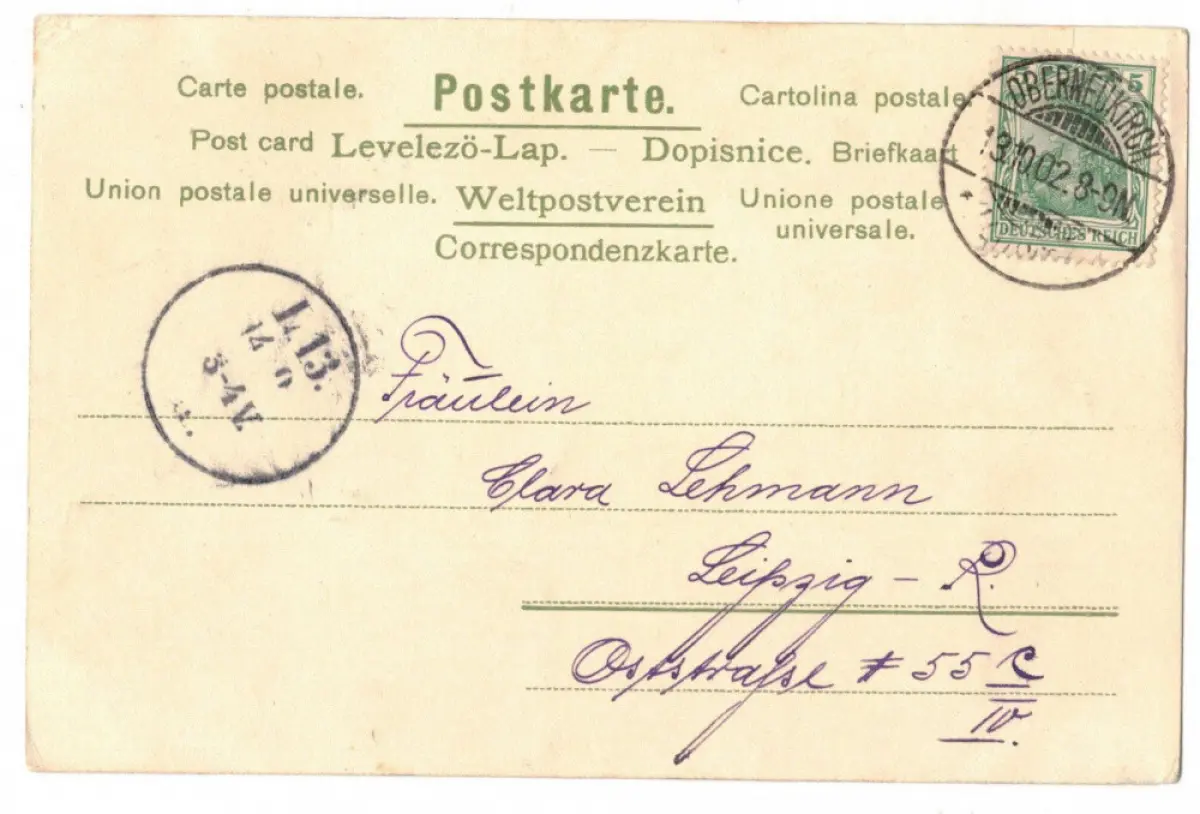 Carte postale. Postkarte. Cartolina postale
Post card Levelezö-Lap. — Dopisnice. Briefkaart
Union postale universelle. Weltpostverein Unione postale
universale.
Correspondenzkarte.
5
DEUTSCHES REICH
OBERNEUKIRCH
13.10.02.8-9N.
L.13.
14
3-4V.
Fräulein
Clara Lehmann
Leipzig - R.
Oststraße # 55 C
IV.